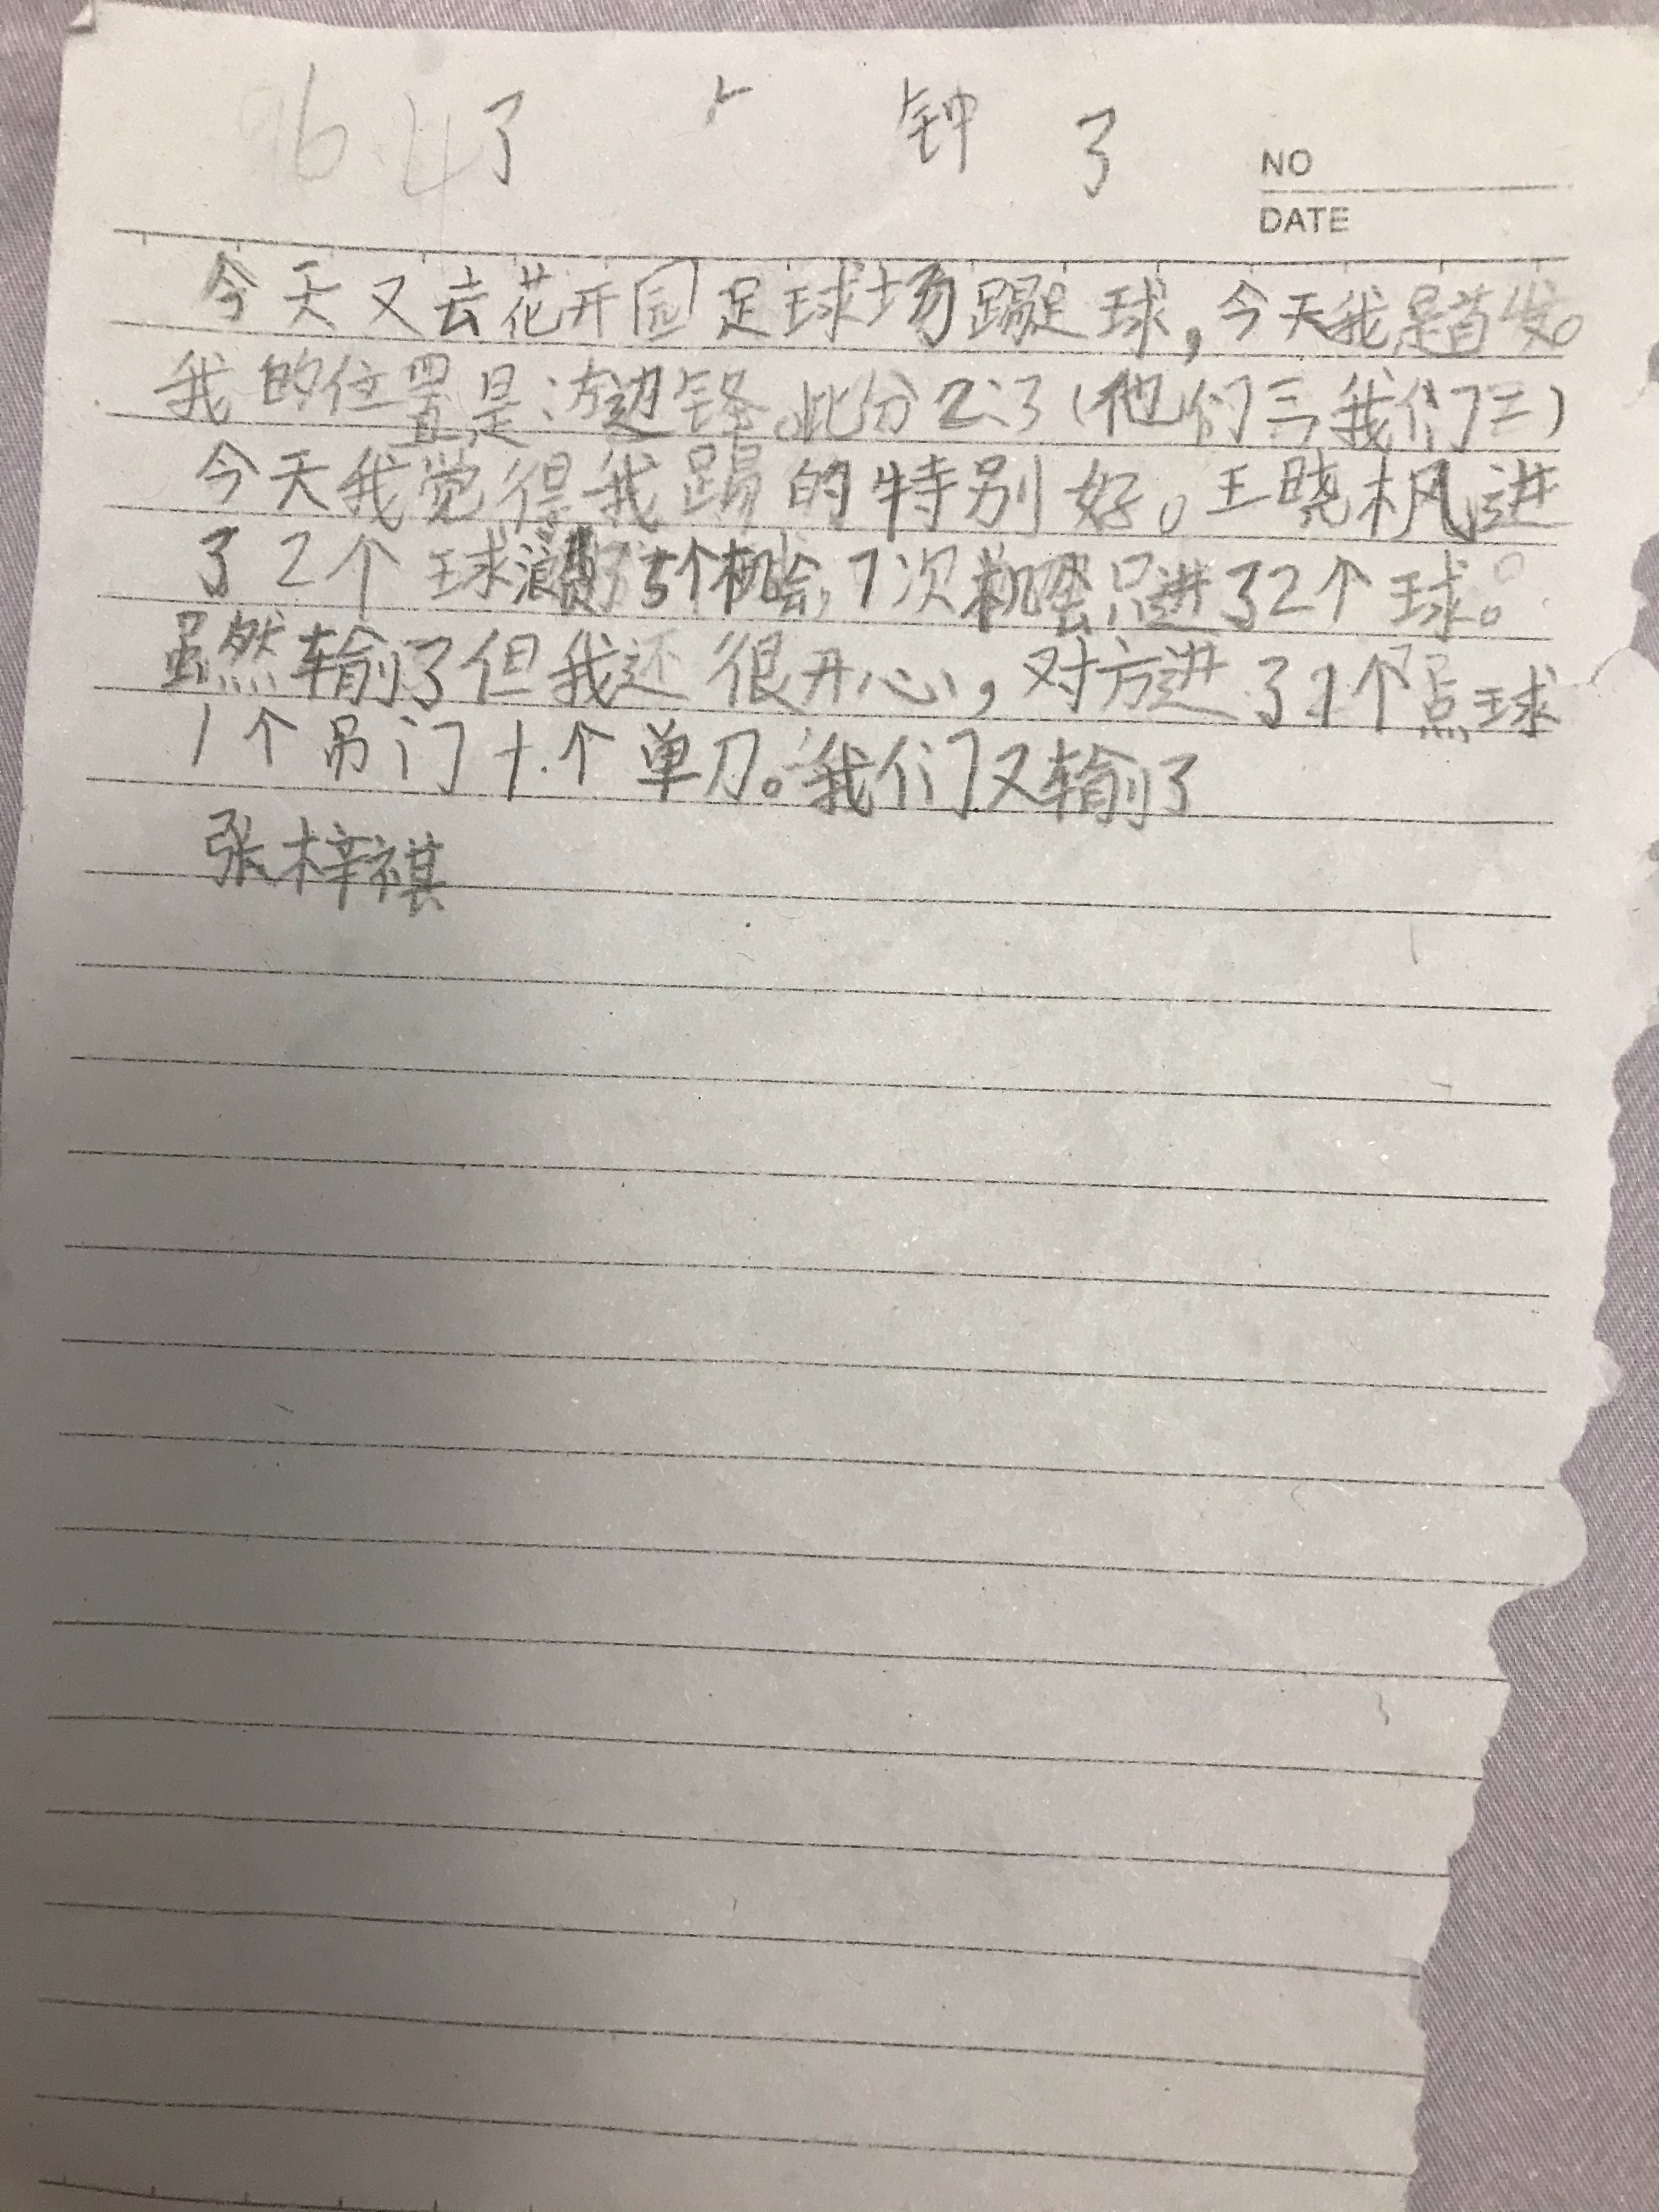 了 钟 了
NO
DATE
今天又去花开园足球场踢足球,今天我是首发。
我的位置是:左边锋。比分2:3(他们三我们二)
今天我觉得我踢的特别好。王晓枫进
了2个球浪费了5个机会,7次机会只进了2个球。
虽然输了但我还很开心,对方进了1个点球
1个吊门十个单刀。我们又输了
张梓祺